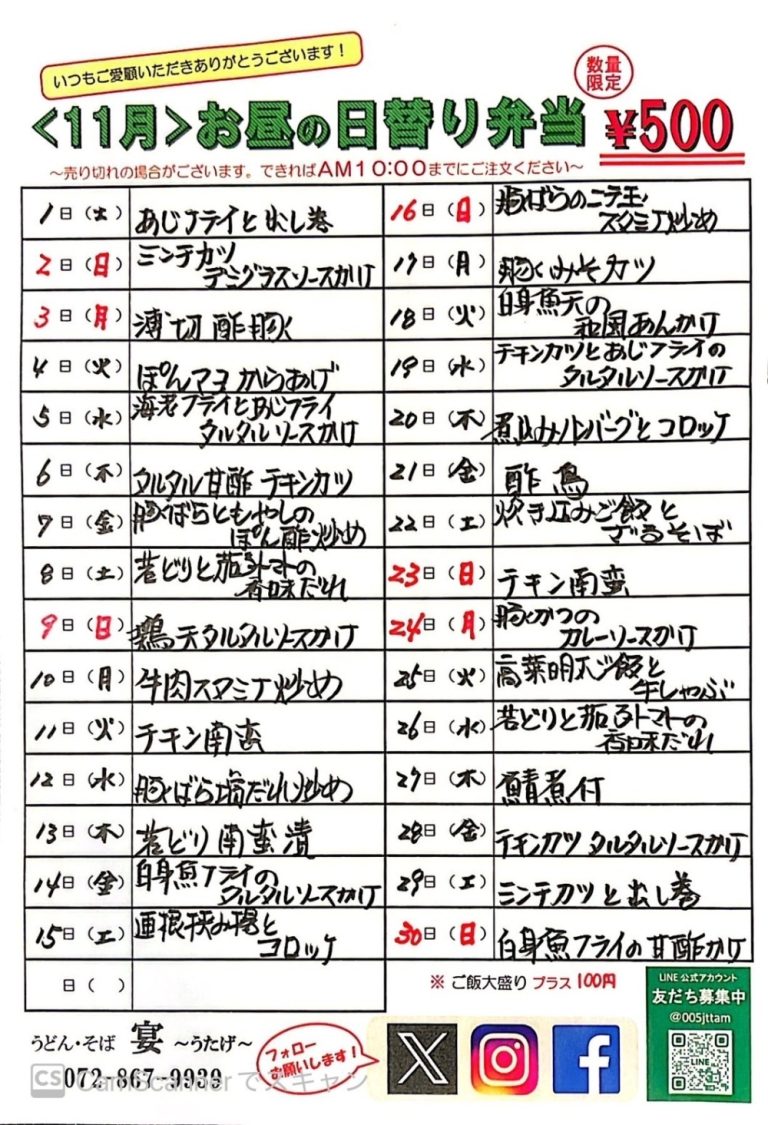 いつもご愛顧いただきありがとうございます！
<11月>お昼の日替り弁当
数量
限定
¥500
～売り切れの場合がございます。できればAM10:00までにご注文ください～
1日(土) あじフライと出し巻
2日(日) ミンチカツ
デミグラスソースかけ
3日(月) 薄切酢豚
4日(火) ぽんマヨからあげ
5日(水) 海老フライとあじフライ
タルタルソースかけ
6日(木) タルタル甘酢チキンカツ
7日(金) 豚ばらともやしの
ぽん酢炒め
8日(土) 若どりと茄子トマトの
香味だれ
9日(日) 鶏天タルタルソースかけ
10日(月) 牛肉スタミナ炒め
11日(火) チキン南蛮
12日(水) 豚ばら塩だれ炒め
13日(木) 若どり南蛮漬
14日(金) 白身魚フライの
タルタルソースかけ
15日(土) 蓮根挟み揚と
コロッケ
日( )
16日(日) 豚ばらのニラ玉
スタミナ炒め
17日(月) 豚みそカツ
18日(火) 白身魚天の
和風あんかけ
19日(水) チキンカツとあじフライの
タルタルソースかけ
20日(木) 煮込みハンバーグとコロッケ
21日(金) 酢鳥
22日(土) 炊き込みご飯と
ざるそば
23日(日) チキン南蛮
24日(月) 豚かつの
カレーソースかけ
25日(火) 高菜明太ご飯と
牛しゃぶ
26日(水) 若どりと茄子トマトの
香味だれ
27日(木) 鯖煮付
28日(金) チキンカツタルタルソースかけ
29日(土) ミンチカツと出し巻
30日(日) 白身魚フライの甘酢かけ
※ご飯大盛り プラス100円
LINE公式アカウント
友だち募集中
@005jttam
うどん・そば 宴 ～うたげ～
072-867-9939
フォロー
お願いします！
CS CamScannerでスキャン